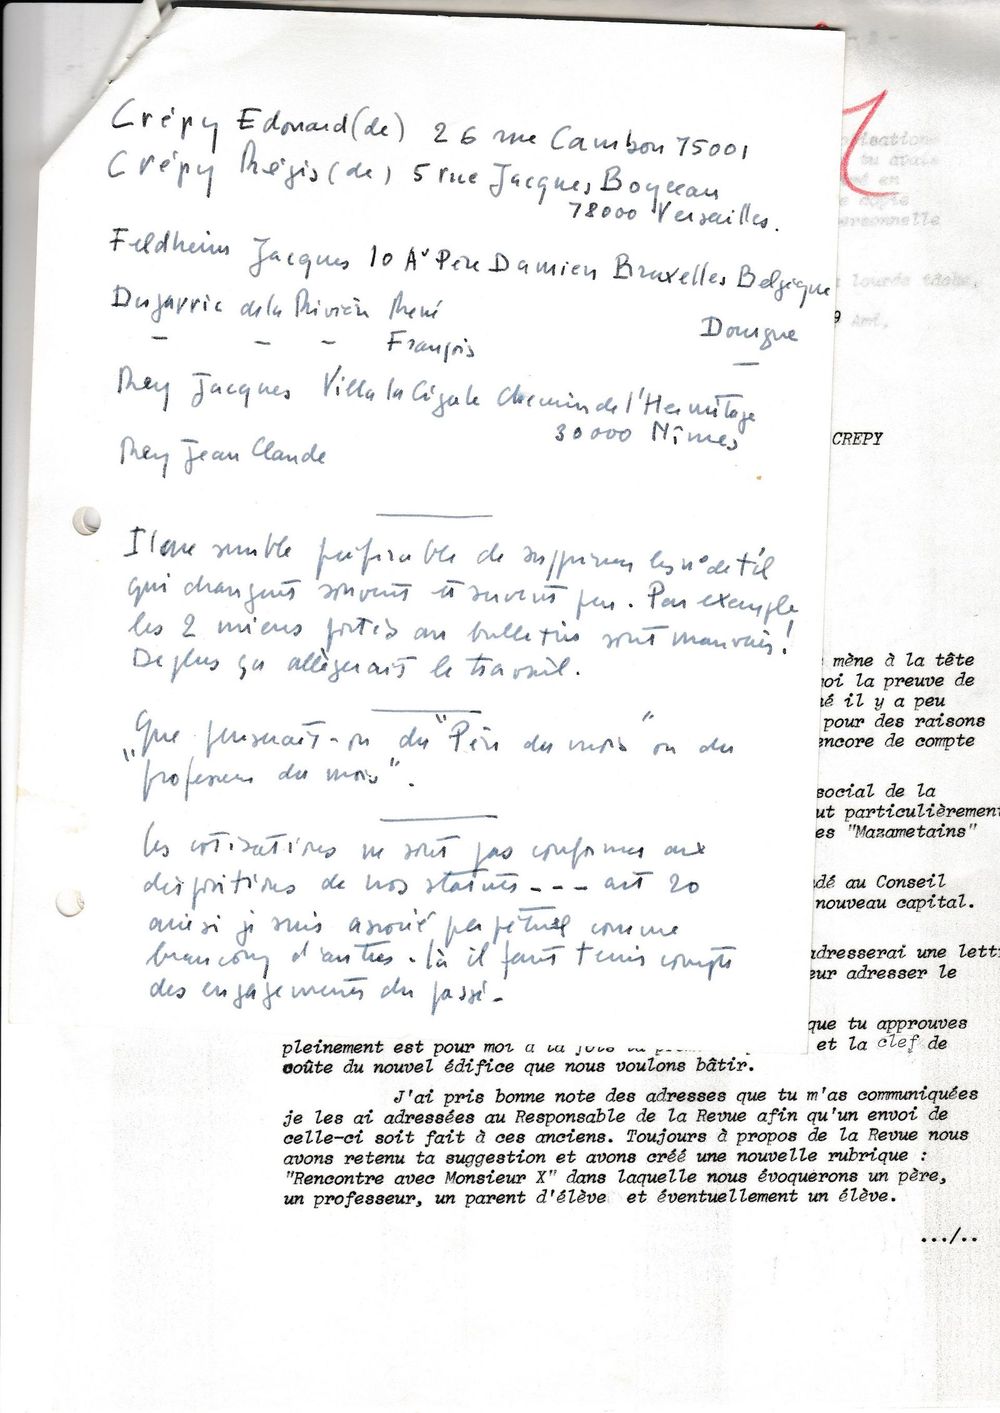 Crépy Edouard (de) 26 rue Cambon 75001
Crépy Régis (de) 5 rue Jacques Boyceau
78000 Versailles.
Feldheim Jacques 10 Av Père Damien Bruxelles Belgique
Dujarric de la Rivière René
Dourgne
— — — François —
Rey Jacques Villa la Cigale Chemin de l'Hermitage
30000 Nîmes
Rey Jean Claude
Il me semble préférable de supprimer les n° de tél
qui changent souvent et servent peu. Par exemple
les 2 miens portés au bulletin sont mauvais!
De plus ça allègerait le travail.
Que penserait-on du "Père du mois" ou du
"professeur du mois".
Les cotisations ne sont pas conformes aux
dispositions de nos statuts --- art 20
ainsi je suis associé perpétuel comme
beaucoup d'autres. Là il faut tenir compte
des engagements du passé.
tu avais
copie
personnelle
lourde tâche.
9 Ami,
CREPY
mène à la tête
la preuve de
il y a peu
pour des raisons
encore de compte
social de la
particulièrement
"Mazametains"
au Conseil
nouveau capital.
adresserai une
adresser le
que tu approuves
pleinement est pour moi et la clef de
voûte du nouvel édifice que nous voulons bâtir.
J'ai pris bonne note des adresses que tu m'as communiquées
je les ai adressées au Responsable de la Revue afin qu'un envoi de
celle-ci soit fait à ces anciens. Toujours à propos de la Revue nous
avons retenu ta suggestion et avons créé une nouvelle rubrique :
"Rencontre avec Monsieur X" dans laquelle nous évoquerons un père,
un professeur, un parent d'élève et éventuellement un élève.
.../..